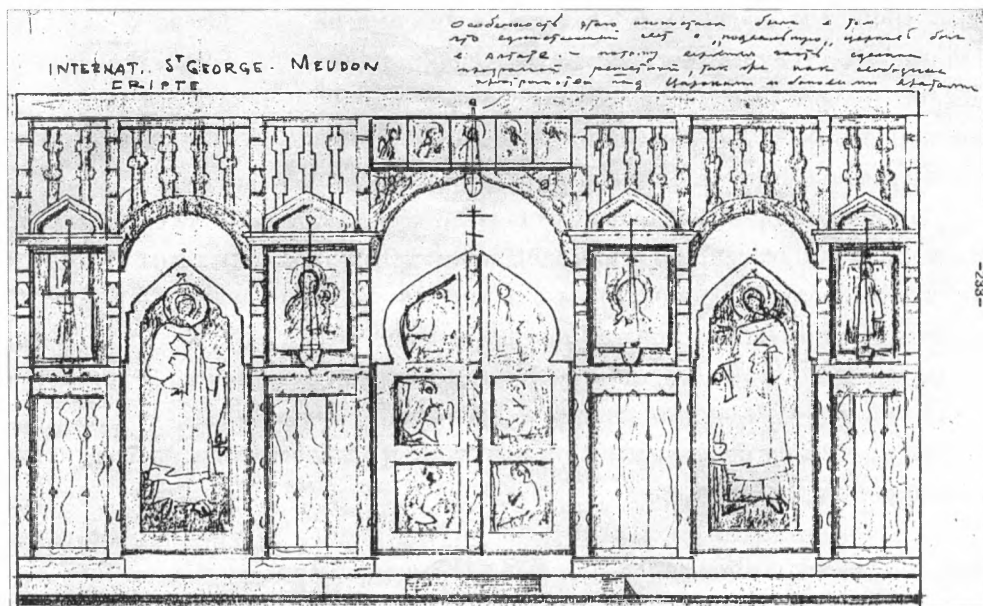 INTERNAT. ST GEORGE. MEUDON
CRIPTE
Особенность этого иконостаса была в том
что единственный свет в "подземную" церковь был
в алтаре — потому верхняя часть сделана
решеткой, так же как свободные
над Царскими и боковыми вратами
-233-